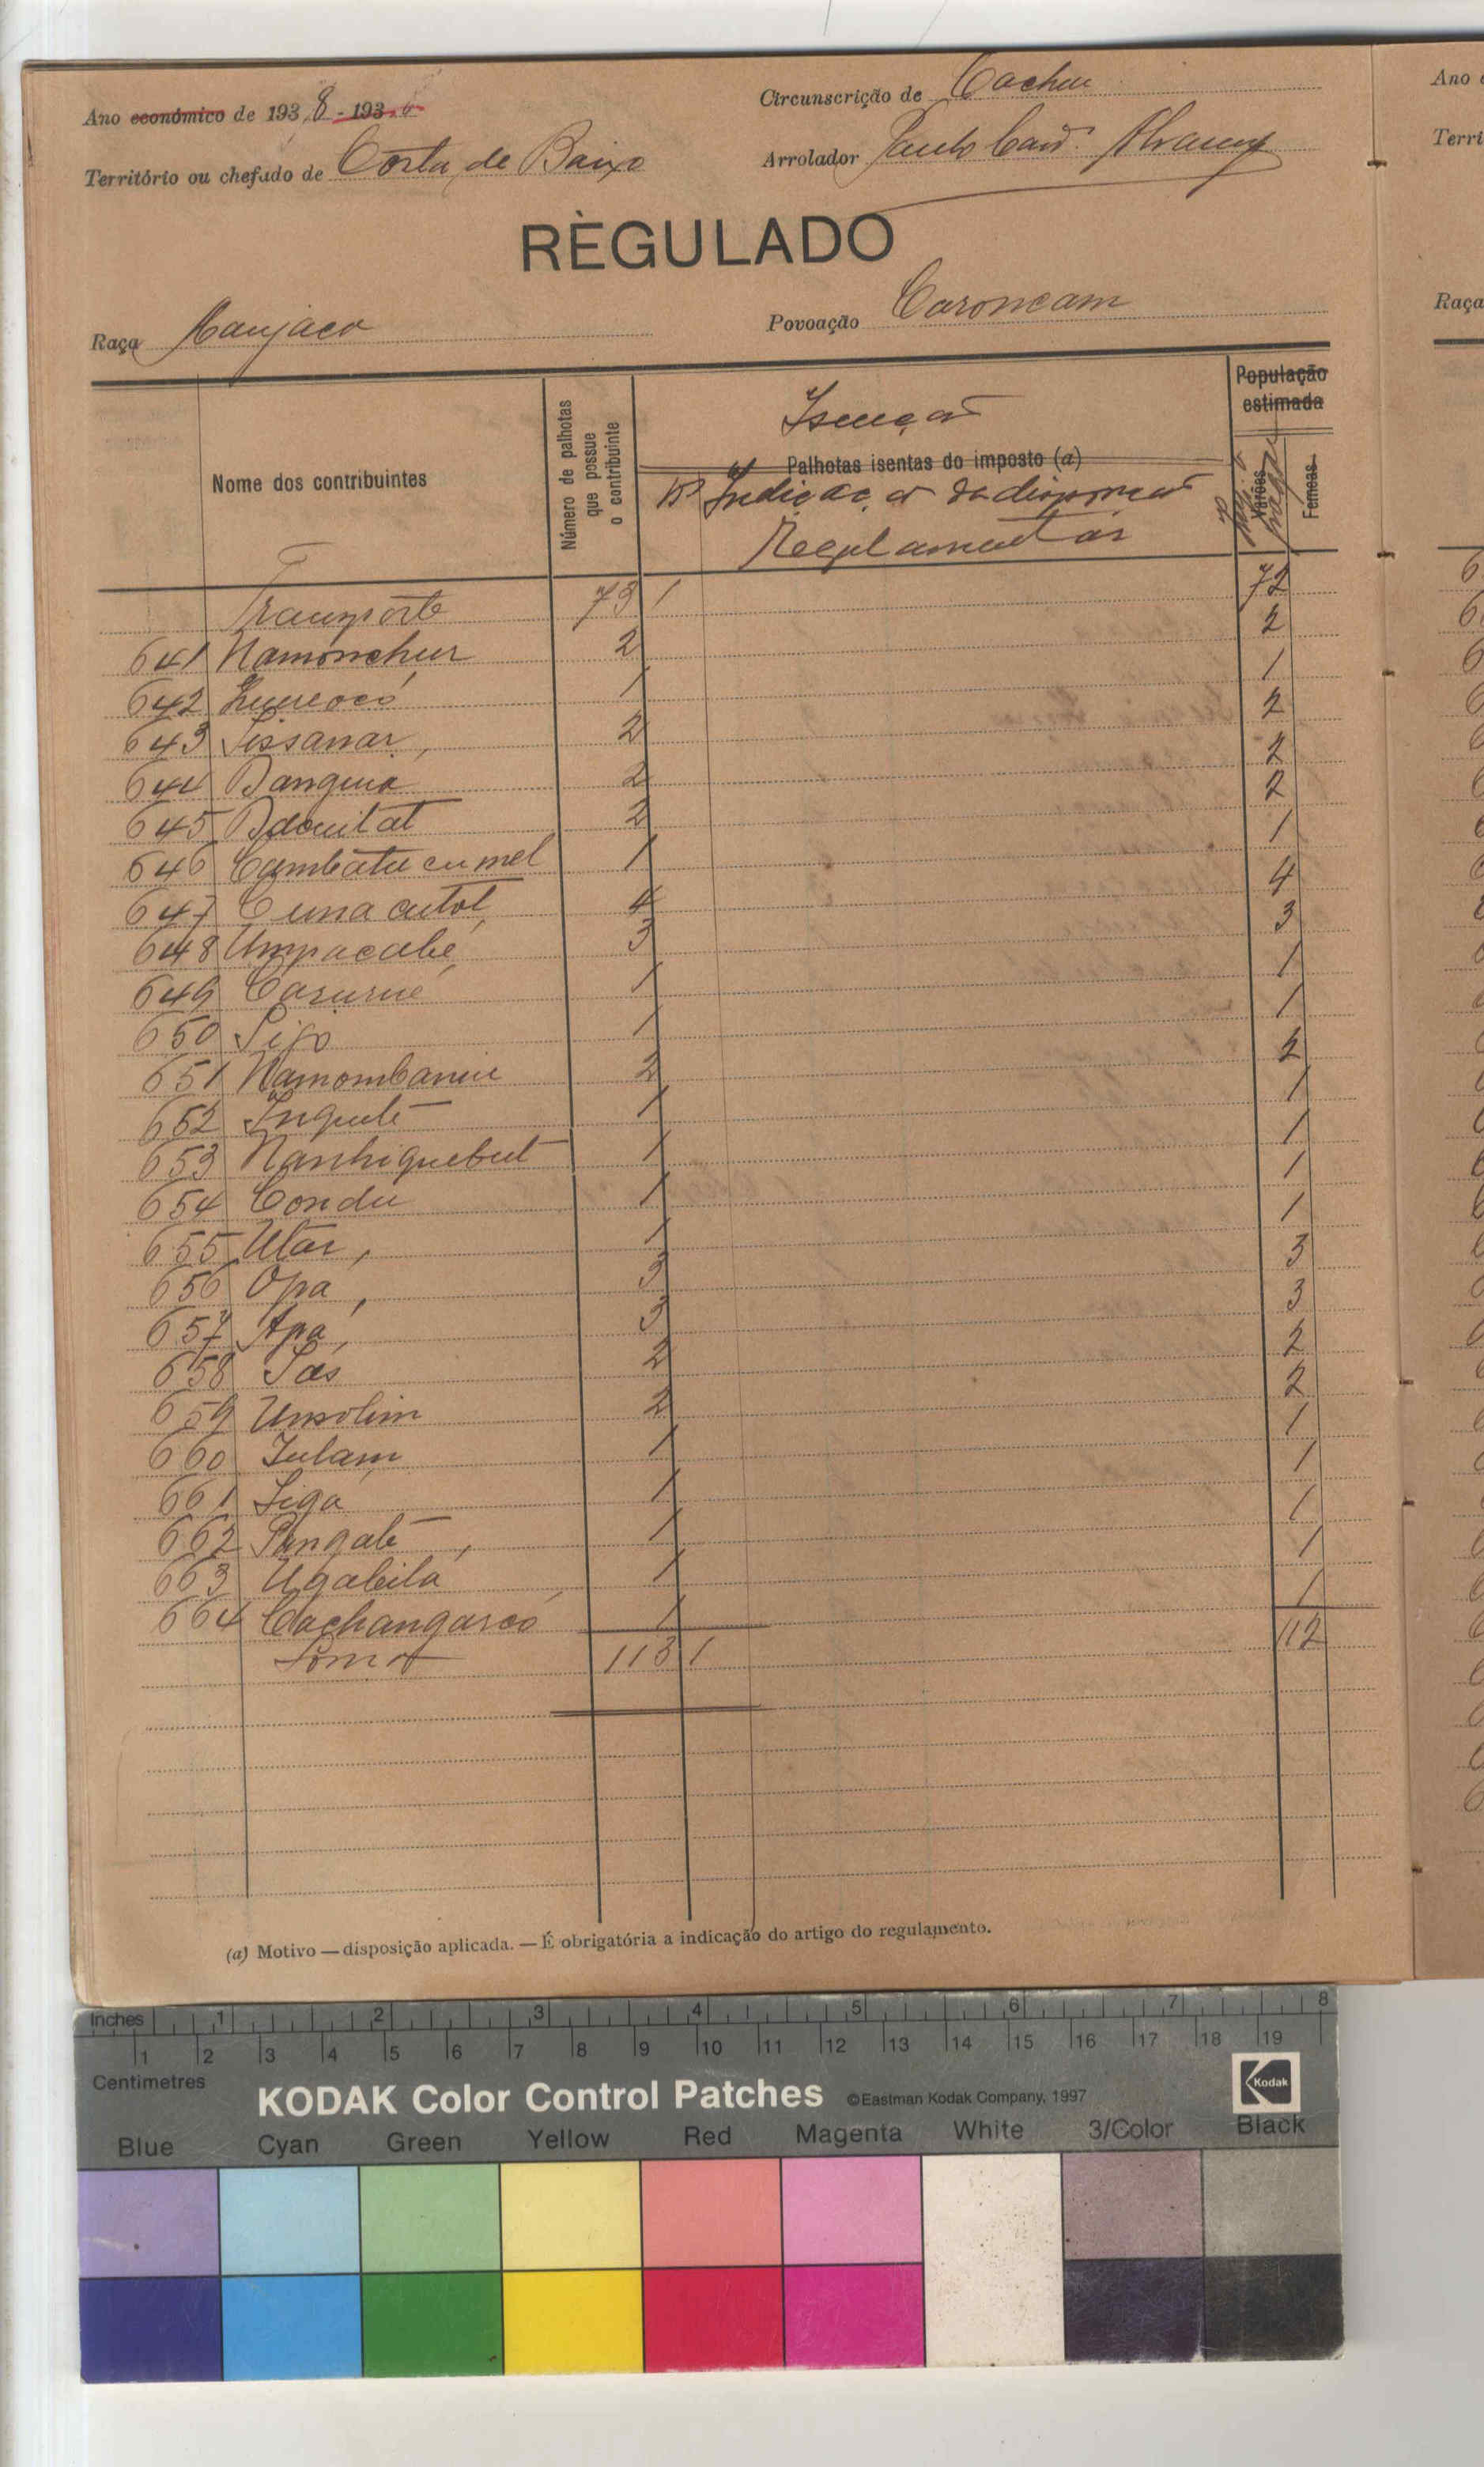 Ano económico de 1938 - 193
Circunscrição de Cacheu
Território ou chefado de Costa de Baixo
Arrolador Paulo
RÈGULADO
Raça Manjaco
Povoação Caroncam
Nome dos contribuintes
Número de palhotas
que possue
o contribuinte
Isenção
Palhotas isentas do imposto (a)
Nº Indicação da disposição
Regulamentar
População
estimada
Varões
Femeas
Transporte 73 1 72
641 Namonchur 2 2
642 1 1
643 Sissanar, 2 2
644 Banguia 2 2
645 Bdouitat 2 2
646 Cambatu cu mel 1 1
647 Cuna cutot, 4 4
648 Umpacabé, 3 3
649 Casurné 1 1
650 Sigo 1 1
651 Namombaniu 2 2
652 Inquté 1 1
653 Nanhiquebut 1 1
654 Condu 1 1
655 Utar, 1 1
656 Opa, 3 3
657 Apa, 3 3
658 Sas 2 2
659 Unsolim 2 2
660 Julam 1 1
661 Siga 1 1
662 Pangate, 1 1
663 Ugabila 1 1
664 Cachangarco 1 1
Soma 113 1 112
(a) Motivo — disposição aplicada. — É obrigatória a indicação do artigo do regulamento.
Ano
Terri
Raça
Inches 1 2 3 4 5 6 7 8
1 2 3 4 5 6 7 8 9 10 11 12 13 14 15 16 17 18 19
Centimetres
KODAK Color Control Patches ©Eastman Kodak Company, 1997 Kodak
Blue Cyan Green Yellow Red Magenta White 3/Color Black